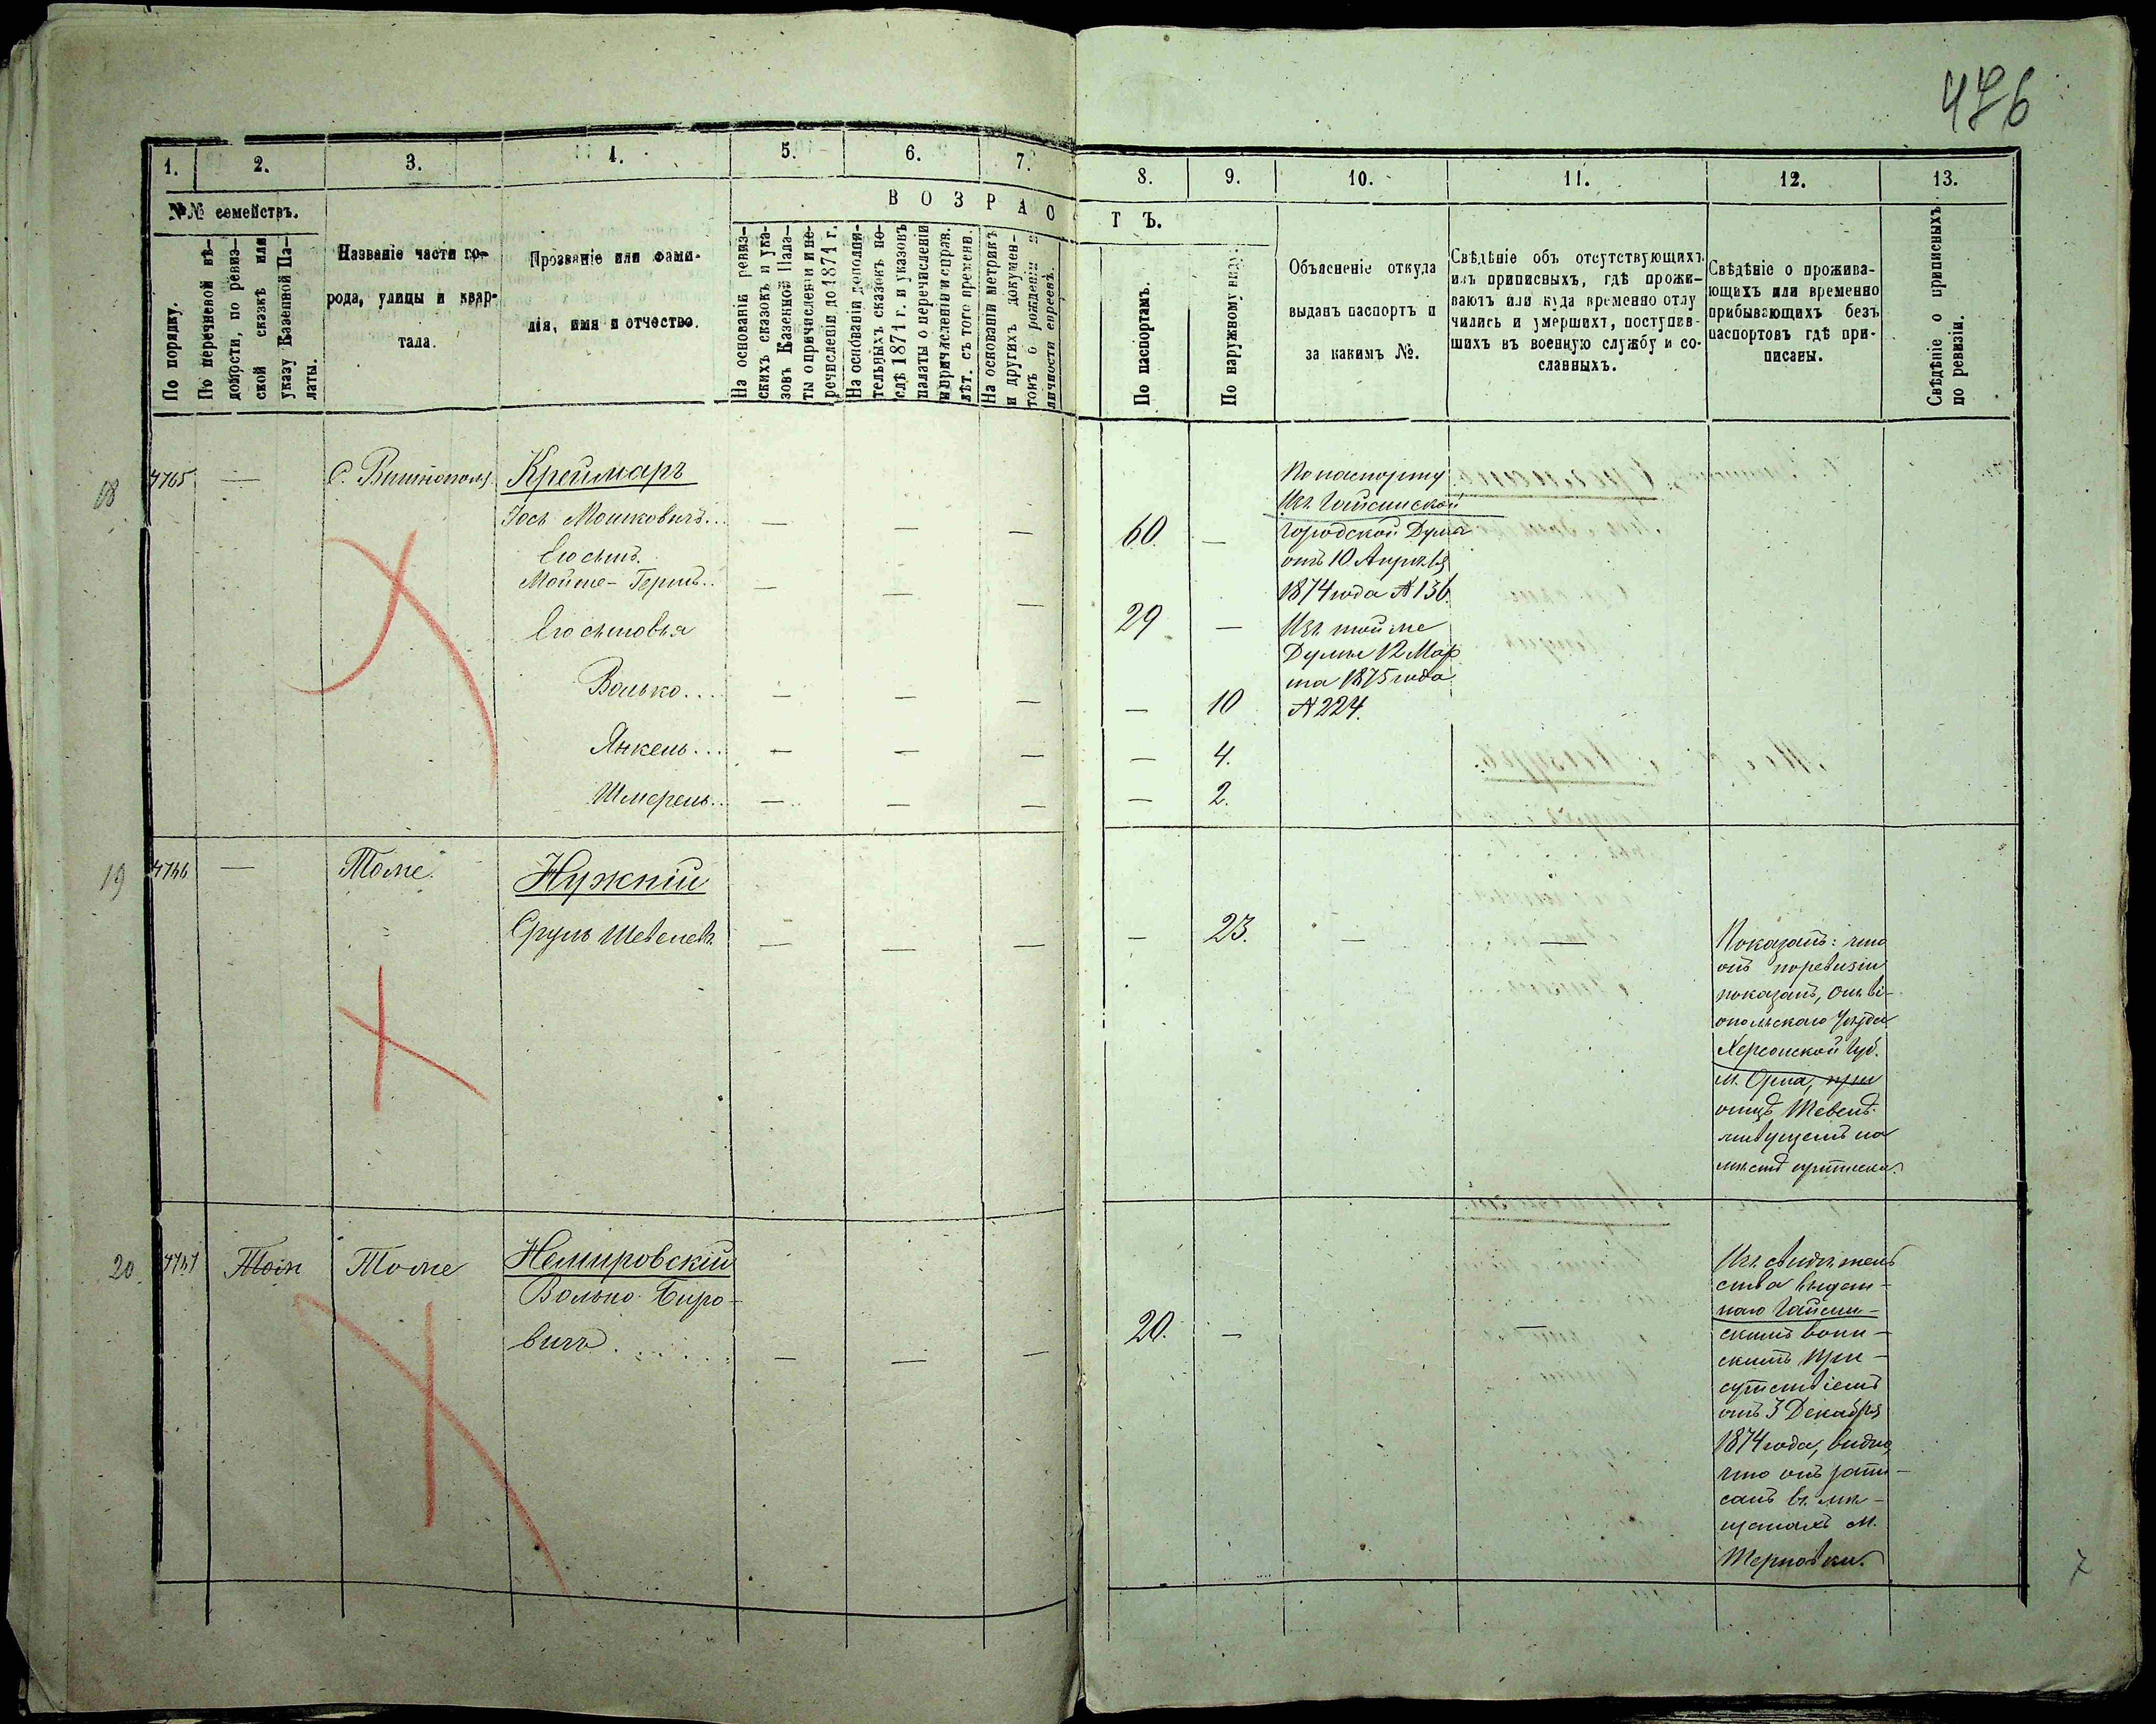 476
1. 2. 3. 4. 5. 6. 7. 8. 9. 10. 11. 12. 13.
№№ семействъ.
ВОЗРАСТЪ.
По порядку.
По перечневой вѣ-
домости, по ревиз-
ской сказкѣ или
указу Казенной Па-
латы.
Названіе части го-
рода, улицы и квар-
тала.
Прозваніе или фами-
лія, имя и отчество.
На основаніи ревиз-
скихъ сказокъ и ука-
зовъ Казенной Пала-
ты о причисленіи и пе-
речисленіи до 1871 г.
На основаніи дополни-
тельныхъ сказокъ по-
слѣ 1871 г. и указовъ
палаты о перечисленіи
и причисленіи и справ.
лѣт. съ того времени.
На основаніи метрикъ
и другихъ докумен-
товъ о рожденіи и
личности евреевъ.
По паспортамъ.
По наружному виду.
Объясненіе откуда
выданъ паспортъ и
за какимъ №.
Свѣдѣніе объ отсутствующихъ
изъ приписныхъ, гдѣ прожи-
ваютъ или куда временно отлу
чились и умершихъ, поступив-
шихъ въ военную службу и со-
сланныхъ.
Свѣдѣніе о прожива-
ющихъ или временно
прибывающихъ безъ
паспортовъ гдѣ при-
писаны.
Свѣдѣніе о приписныхъ
по ревизіи.
18 4765 — С. Вишнополь Креймаръ
Іось Мошковичъ... — — — 60. —
Его сынъ
Мойше-Гершъ.. — — — 29 —
Его сыновья
Волько.... — — — — 10
Янкель... — — — — 4.
Шмерель... — — — — 2.
По паспорту
Изъ Гайсинской
Городской Думы
отъ 10 Апрѣля
1874 года № 136.
Изъ той же
Думы 12 Мар
та 1875 года
№ 224.
19 — Тоже. Нужній
Сруль Шевелевъ — — — — 23. — —
Показалъ: что
онъ по ревизіи
показанъ,
опольскаго Уѣзда
Херсонской Губ.
при
отцѣ Шевелѣ
живущемъ на
мѣстѣ приписки.
20. Тоже Немировскій
Волько Беро-
вичъ...... — — — 20. — —
Изъ свидѣтель
ства выдан-
наго Гайсин-
скимъ воин-
скимъ при-
сутствіемъ
отъ 3 Декабря
1874 года, видно
что онъ запи-
санъ въ мѣ-
щанахъ м.
Терновки.
7